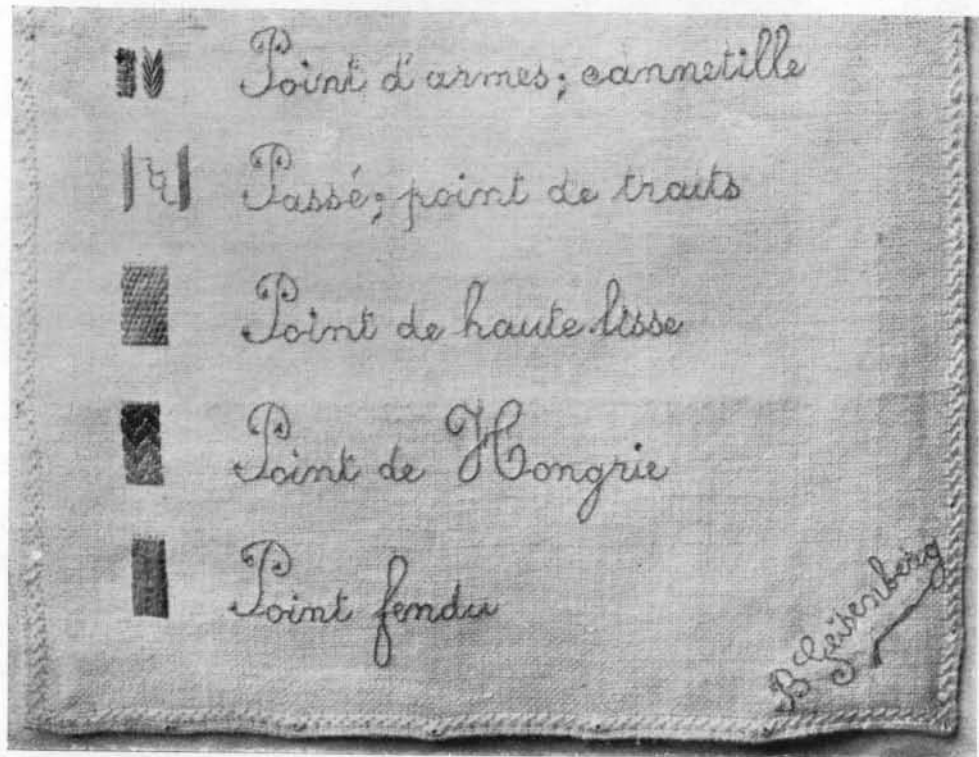 Point d'armes; cannetille
Passé; point de traits
Point de haute lisse
Point de Hongrie
Point fendu
B Geisenberg